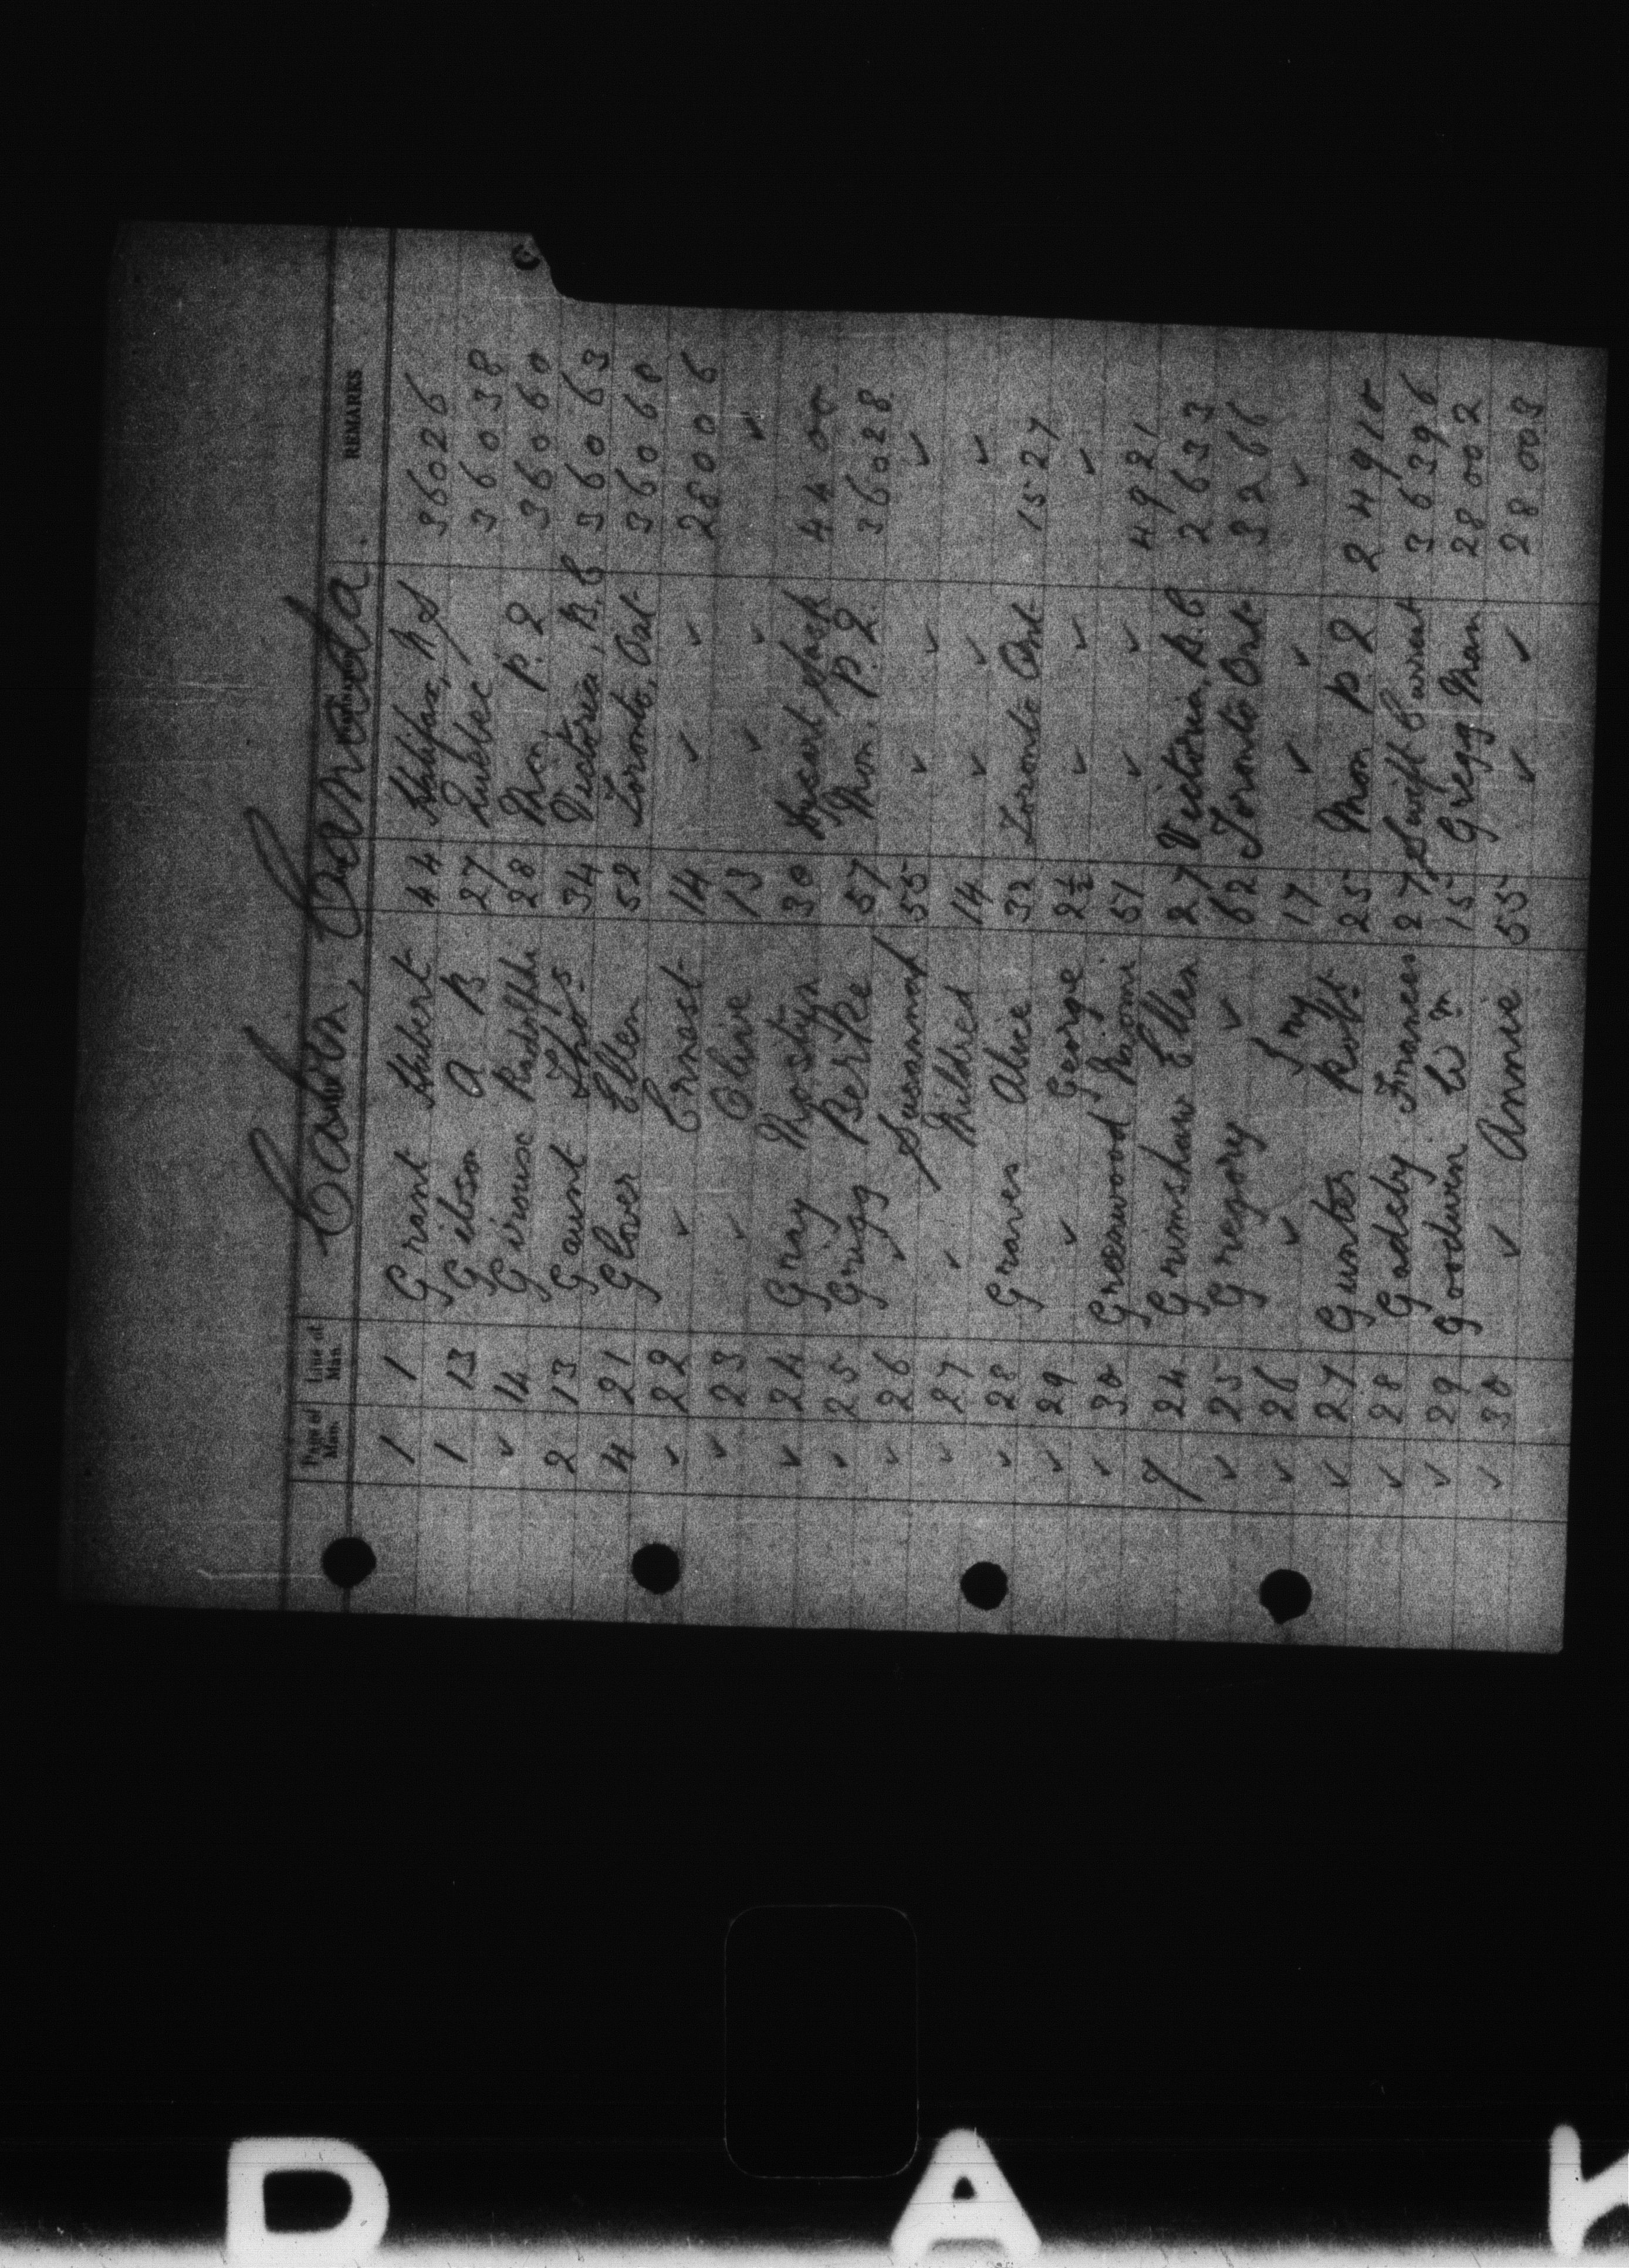 Cabin, Canada.
Page of Man. Line of Man. REMARKS
1 1 Grant Hubert 44 Halifax, N S 36026
1 13 Gibson A B 27 Quebec 36038
✓ 14 Girouse Radolphe 28 Mon, P. Q 36060
2 13 Gaunt Thos 34 Victoria, B. C 36063
4 21 Glover Ellen 52 Toronto, Ont 36068
✓ 22 ✓ Ernest 14 ✓ ✓ 28006
✓ 23 ✓ Olive 13 ✓ ✓ ✓
✓ 24 Gray Mostyn 30 Sask 4400
✓ 25 Grigg Bertke 57 Mon, P. Q. 36028
✓ 26 ✓ Susannah 55 ✓ ✓ ✓
✓ 27 ✓ Mildred 14 ✓ ✓ ✓
✓ 28 Graves Alice 32 Toronto Ont 1527
✓ 29 ✓ George 2½ ✓ ✓ ✓
✓ 30 Greenwood Naomi 51 ✓ ✓ 4921
7 24 Grimshaw Ellen 27 Victoria, B. C 2633
✓ 25 Gregory ✓ 62 Toronto Ont 3266
✓ 26 ✓ Jny 17 ✓ ✓ ✓
✓ 27 Gunter Robt 25 Mon P. Q 24910
✓ 28 Gadsby Frances 27 Swift Current 36396
✓ 29 Goodwin Wm 15 Gregg Man 28002
✓ 30 ✓ Annie 55 ✓ ✓ 28003
D A